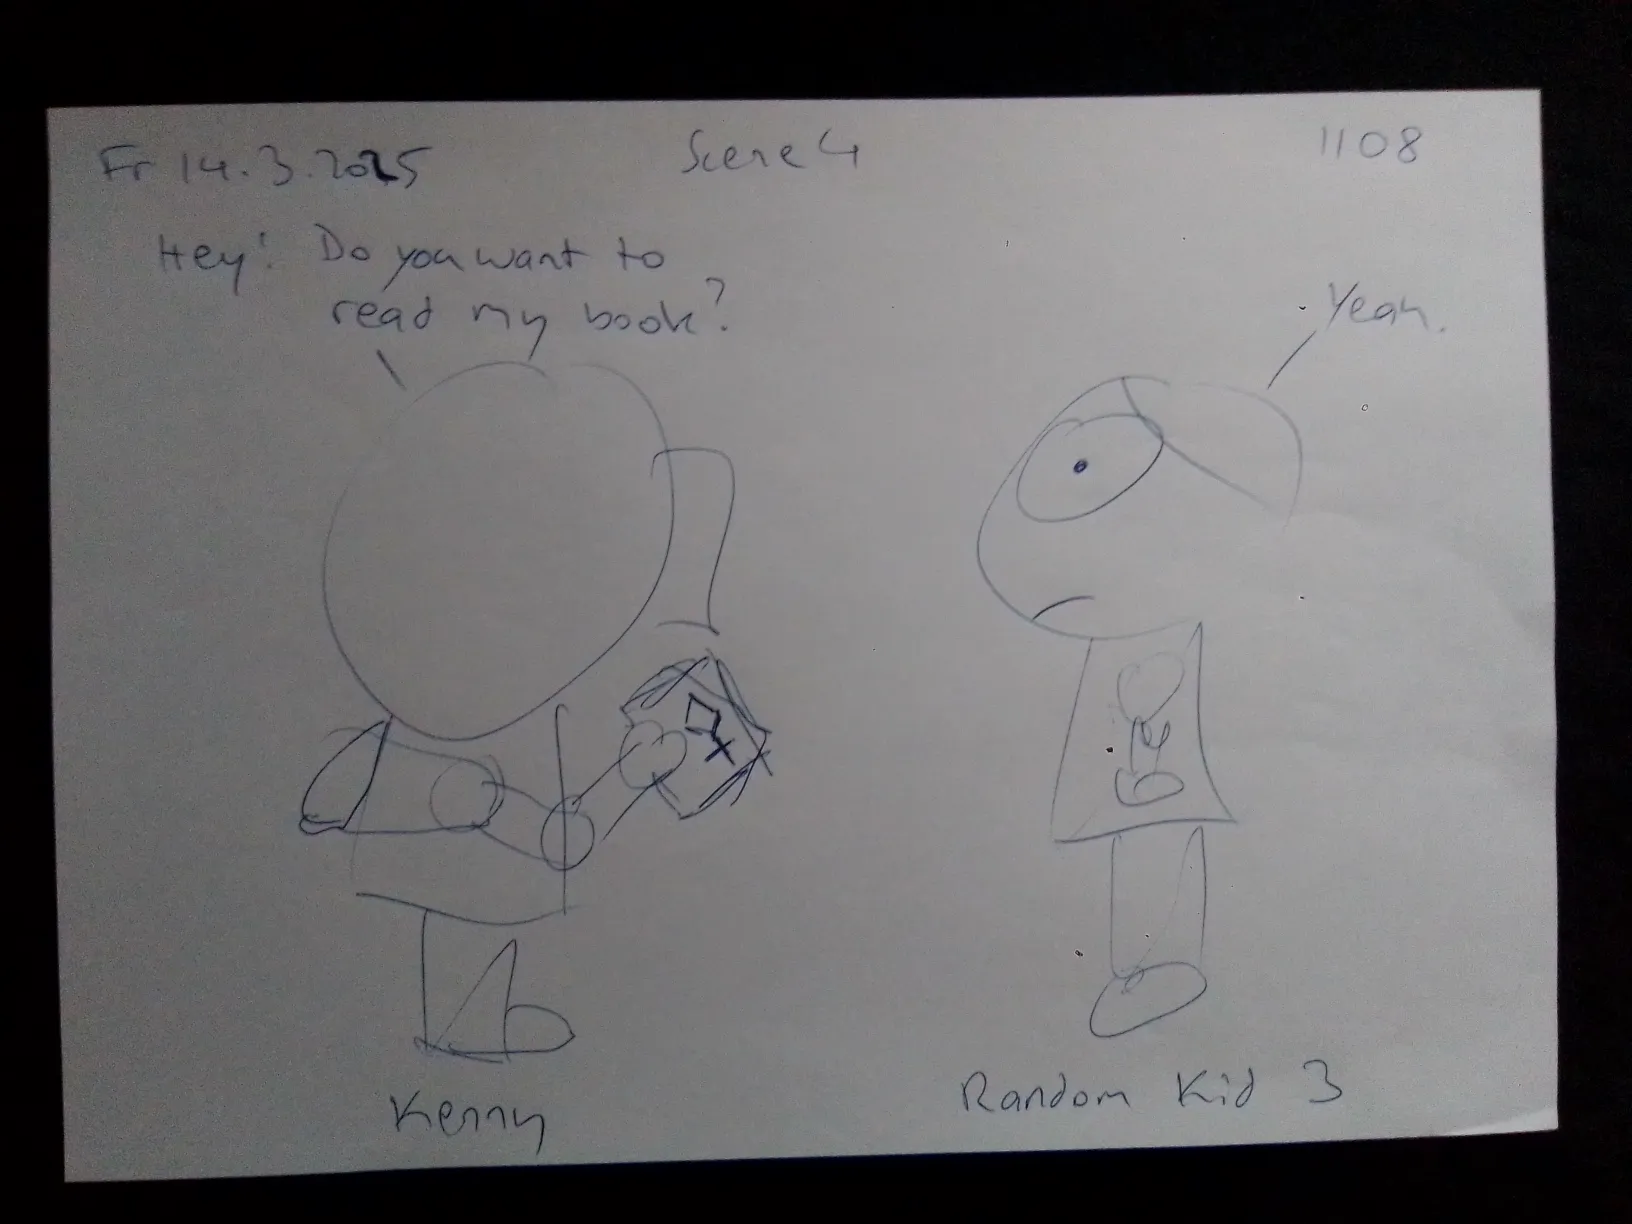 Fr 14.3.2025 Scene 4 1108
Hey! Do you want to
read my book?
Yeah.
Kenny
Random Kid 3